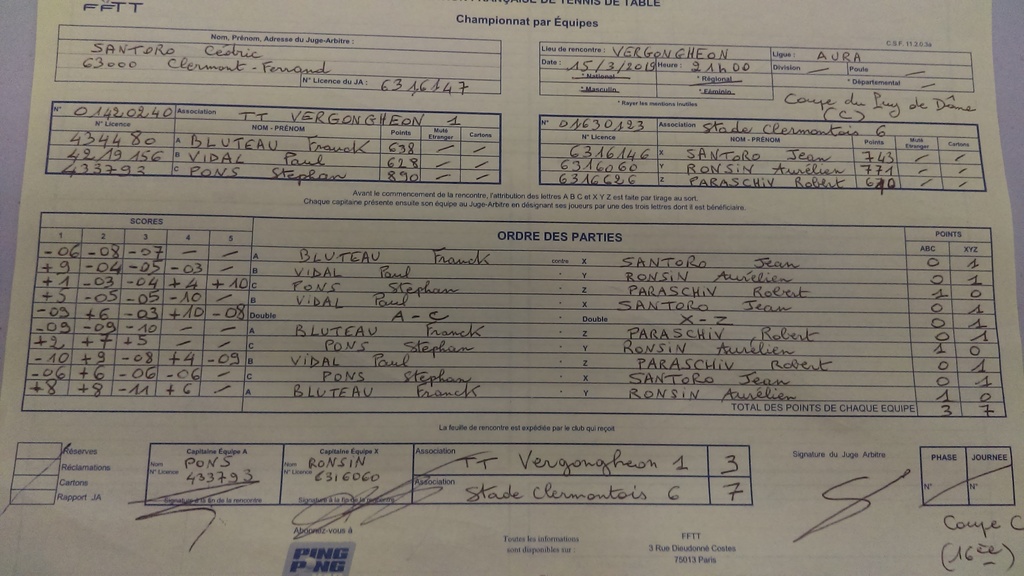 FFTT
FRANÇAISE DE TENNIS DE TABLE
Championnat par Équipes
C.S.F. 11.2.0.3a
Nom, Prénom, Adresse du Juge-Arbitre :
SANTORO Cédric
63000 Clermont-Ferrand
N° Licence du JA : 6316147
Lieu de rencontre : VERGONGHEON
Ligue : AURA
Date : 15/3/2019 Heure : 21h00
Division — Poule —
* National * Régional * Départemental —
* Masculin * Féminin
* Rayer les mentions inutiles
Coupe du Puy de Dôme
(C)
N° 01420240 Association TT VERGONGHEON 1
N° Licence NOM - PRÉNOM Points Muté Etranger Cartons
434480 A BLUTEAU Franck 638 — —
4219156 B VIDAL Paul 628 — —
433793 C PONS Stephan 890 — —
N° 01630123 Association Stade Clermontois 6
N° Licence NOM - PRÉNOM Points Muté Etranger Cartons
6316146 X SANTORO Jean 743 — —
6316060 Y RONSIN Aurélien 771 — —
6316626 Z PARASCHIV Robert 670 — —
Avant le commencement de la rencontre, l'attribution des lettres A B C et X Y Z est faite par tirage au sort.
Chaque capitaine présente ensuite son équipe au Juge-Arbitre en désignant ses joueurs par une des trois lettres dont il est bénéficiaire.
SCORES ORDRE DES PARTIES POINTS
1 2 3 4 5 ABC XYZ
-06 -08 -07 — — A BLUTEAU Franck contre X SANTORO Jean 0 1
+9 -04 -05 -03 — B VIDAL Paul " Y RONSIN Aurélien 0 1
+1 -03 -04 +4 +10 C PONS Stephan " Z PARASCHIV Robert 1 0
+5 -05 -05 -10 — B VIDAL Paul " X SANTORO Jean 0 1
-09 +6 -03 +10 -08 Double A-C Double X-Z 0 1
-09 -09 -10 — — A BLUTEAU Franck " Z PARASCHIV Robert 0 1
+2 +7 +5 — — C PONS Stephan " Y RONSIN Aurélien 1 0
-10 +9 -08 +4 -09 B VIDAL Paul " Z PARASCHIV Robert 0 1
-06 +6 -06 -06 — C PONS Stephan " X SANTORO Jean 0 1
+8 +8 -11 +6 — A BLUTEAU Franck " Y RONSIN Aurélien 1 0
TOTAL DES POINTS DE CHAQUE EQUIPE 3 7
La feuille de rencontre est expédiée par le club qui reçoit
Réserves
Réclamations
Cartons
Rapport JA
Capitaine Équipe A
Nom PONS
N° Licence 433793
Signature à la fin de la rencontre
Capitaine Équipe X
Nom RONSIN
N° Licence 6316060
Signature à la fin de la rencontre
Association TT Vergongheon 1 3
Association Stade Clermontois 6 7
Signature du Juge Arbitre
PHASE JOURNEE
N° N°
Coupe C
(16ème)
Abonnez-vous à
PING PONG
Toutes les informations
sont disponibles sur :
FFTT
3 Rue Dieudonné Costes
75013 Paris